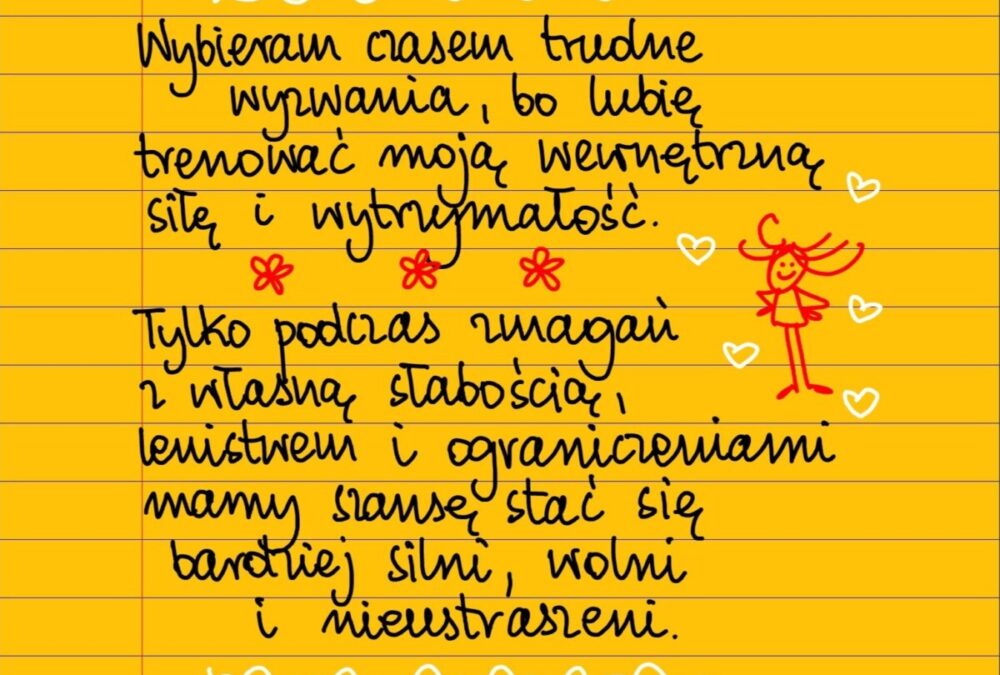 Wybieram czasem trudne
wyzwania, bo lubię
trenować moją wewnętrzną
siłę i wytrzymałość.
Tylko podczas zmagań
z własną słabością,
lenistwem i ograniczeniami
mamy szansę stać się
bardziej silni, wolni
i nieustraszeni.